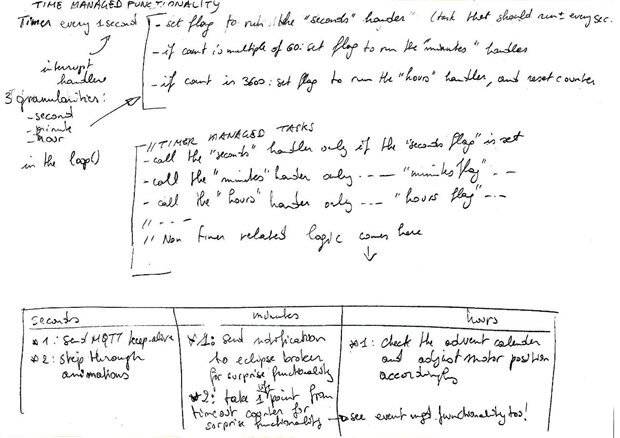 TIME MANAGED FUNCTIONALITY
Timer every 1 second
- set flag to run the "seconds" handler (task that should run ± every sec.
- if count is multiple of 60: set flag to run the "minutes" handler
- if count is 3600: set flag to run the "hours" handler, and reset counter
interrupt
handler
3 granularities:
- second
- minute
- hour
in the loop()
// TIMER MANAGED TASKS
- call the "seconds" handler only if the "seconds flag" is set
- call the "minutes" hander only - - - "minutes flag" - -
- call the "hours" hander only - - - "hours flag" - -
// - - -
// Non timer related logic comes here
seconds
* 1: Send MQTT keep-alive
* 2: Step through
animations
minutes
* 1: send notification
to eclipse broker
for surprise functionality
* 2: take 1 point from
timeout counter for
surprise functionality
hours
* 1: check the advent calender
and adjust motor position
accordingly
see event mgd functionality too!